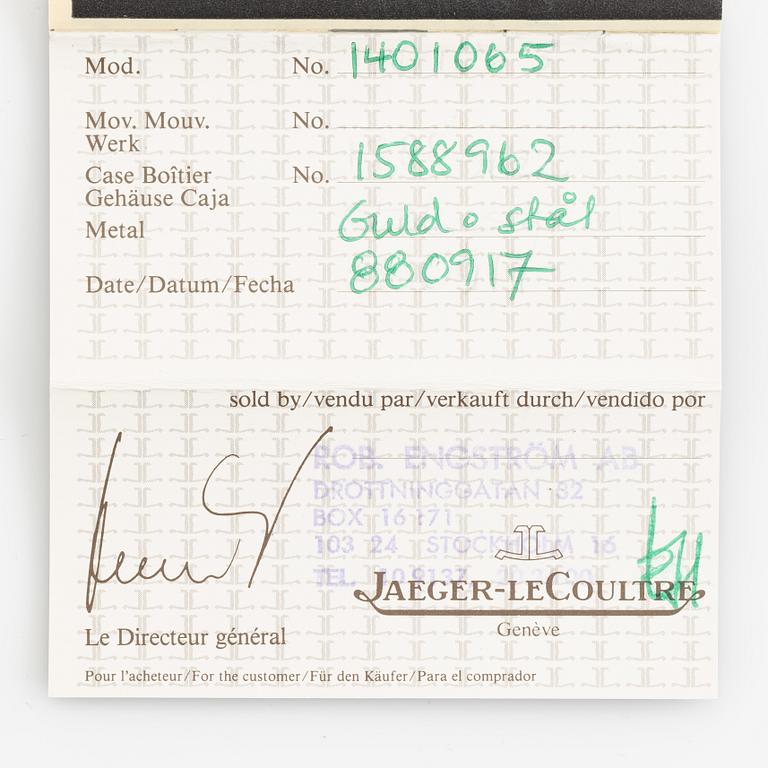 Mod. No. 1401065
Mov. Mouv. No.
Werk
Case Boîtier No. 1588962
Gehäuse Caja
Metal Guld o stål
Date/Datum/Fecha 880917
sold by/vendu par/verkauft durch/vendido por
ROB. ENGSTRÖM AB
DROTTNINGGATAN 32
BOX 16 171
103 24 STOCKHOLM 16
TEL.
JAEGER-LECOULTRE
Genève
Le Directeur général
Pour l'acheteur/For the customer/Für den Käufer/Para el comprador